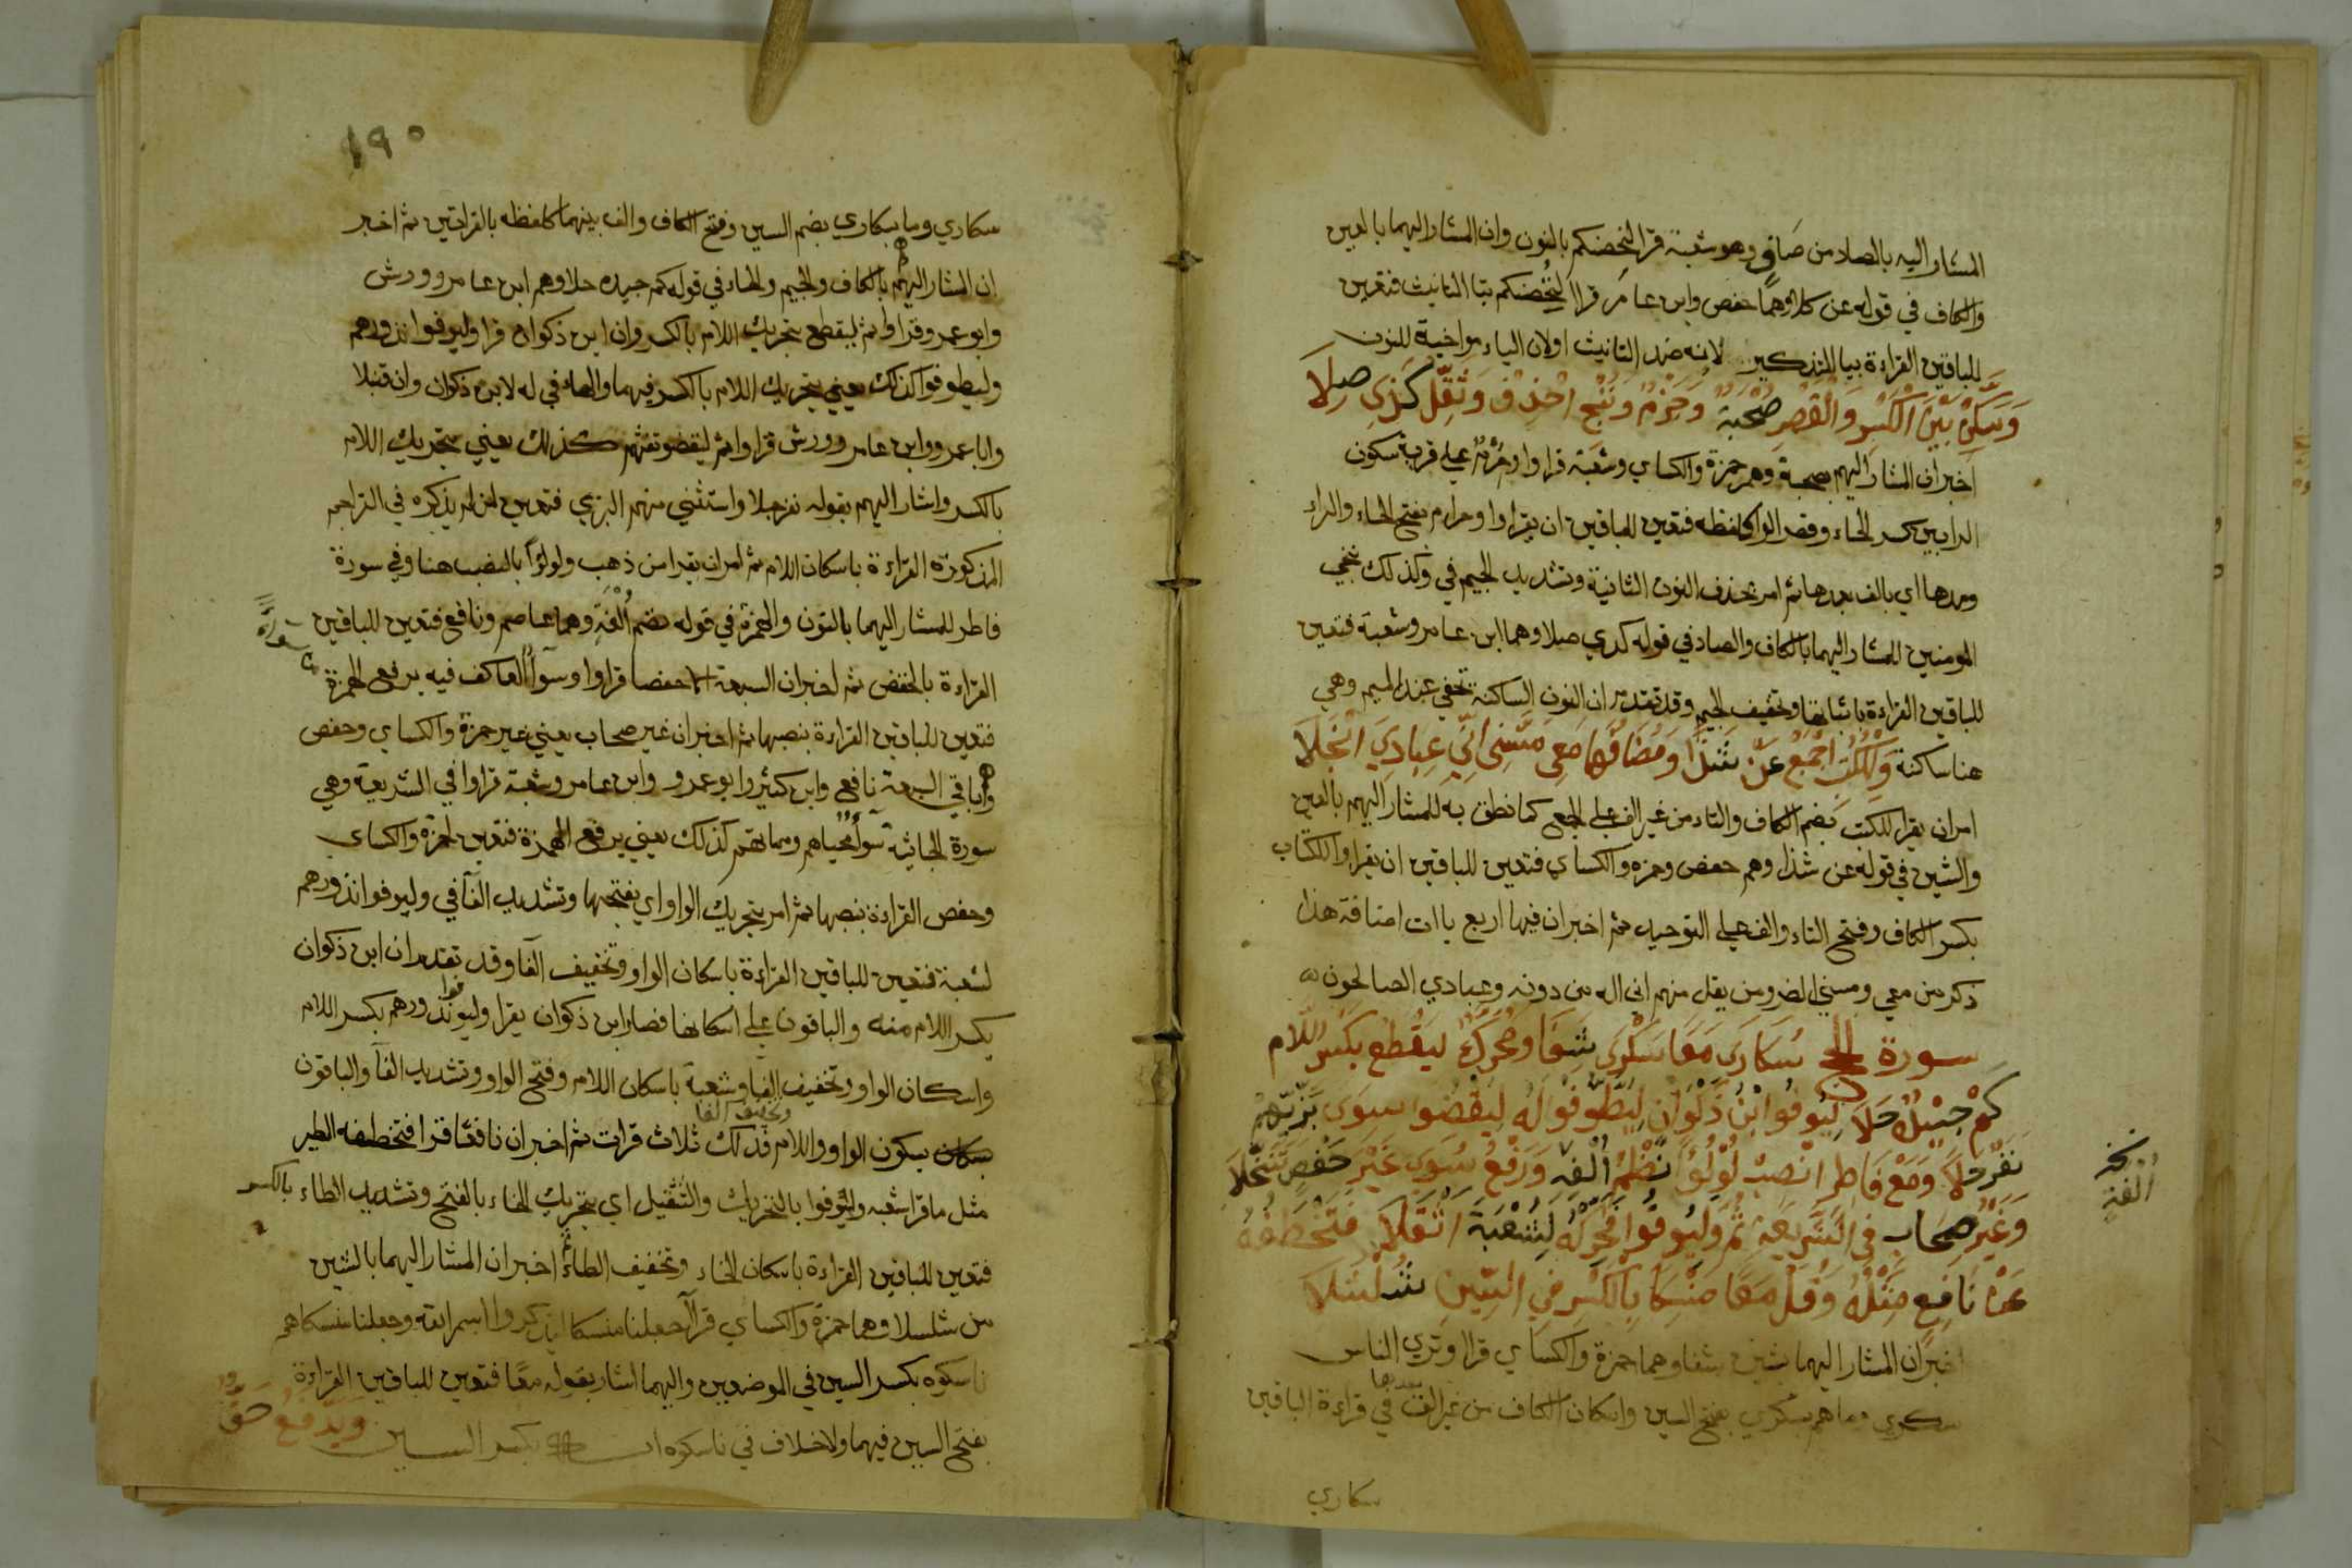 المشار اليه بالصاد من صافي وهو شعبة قرا لنحصنكم بالنون وان المشار اليهما بالعين
والكاف في قوله عن كلا وهما حفص وابن عامر قراا لتحصنكم بتا التانيث فتعين
للباقين القراءة بيا التذكير لانه ضد التانيث اولان الياء مواخية للنون
وَسَكِّنْ بَيْنَ الْكَسْرِ وَالْقَصْرِ صُحْبَةٌ وَحِرْمٌ وَنُنْجِ احْذِفْ وَثَقِّلْ كَذِي صِلَا
اخبران المشار اليهم بصحبة وهم حمزة والكساي وشعبة قراوا وحِرْمٌ على قرية سكون
الرا بين كسر الحاء وقصر الرا كلفظه فتعين للباقين ان يقراوا وحرام بفتح الحاء والراء
ومدها اي بالف بعدها ثم امر بحذف النون الثانية وتشديد الجيم في وكذلك ننجي
المومنين للمشار اليهما بالكاف والصاد في قوله كذي صلا وهما ابن عامر وشعبة فتعين
للباقين القراءة باثباتها وتخفيف الجيم وقد تقدم ان النون الساكنة تخفي عند الجيم وهي
هنا ساكنة وَلِلْكُتُبِ اجْمَعْ عَنْ شَذًا وَمُضَافُهَا مَعِي مَسَّنِي اِنِّي عِبَادِيَ اجْتَلَا
امران يقرا للكتب بضم الكاف والتاء من غير الف على الجمع كما نطق به للمشار اليهم بالعين
والشين في قوله عن شذا وهم حفص وحمزه والكساي فتعين للباقين ان يقراوا للكتاب
بكسر الكاف وفتح التاء والف على التوحيد ثم اخبر ان فيها اربع ياات اضافة هذا
ذكر من معي ومسني الضر ومن يقل منهم اني اله من دونه وعبادي الصالحون
سورة الحج سُكَارَى مَعًا سَكْرَى شَفَا وَمُحَرَّكٌ لِيَقْطَعْ بِكَسْرِ اللَّامِ
كَمْ جِيدُهُ حَلَا لِيُوفُوا ابْنُ ذَكْوَانٍ لِيَطَّوَّفُوا لَهُ لِيَقْضُوا سِوَى بَزِّيِّهِمْ
نَفَرٌ جَلَا وَمَعْ فَاطِرِ انْصِبْ لُؤْلُؤًا نَظْمُ اُلْفَةٍ وَرَفْعُ سَوَاءً غَيْرَ حَفْصٍ تَنَخَّلَا
نخه
الفة
وَغَيْرُ صِحَابٍ فِي الشَّرِيعَةِ ثُمَّ وَلْيُوَفُّوا فَحَرِّكْهُ لِشُعْبَةَ اَثْقَلَا فَتَخْطَفُهُ
عَنْ نَافِعٍ مِثْلُهُ وَقُلْ مَعًا مَنْسِكًا بِالْكَسْرِ فِي السِّينِ شُلْشُلَا
اخبر ان المشار اليهما بشين شفا وهما حمزة والكساي قراا وترى الناس
سكرى وما هم بسكرى بفتح السين واسكان الكاف من غير الف بعدها في قراءة الباقين
سكاري
١٩٠
سكاري وما بسكاري بضم السين وفتح الكاف والف بينهما كلفظه بالقراتين ثم اخبر
ان المشار اليهم بالكاف والجيم والحاء في قوله كم جيده حلا وهم ابن عامر وورش
وابو عمرو قراوا ثم ليقطع بتحريك اللام بالكسر وان ابن ذكوان قرا وليوفوا نذورهم
وليطوفوا كذلك يعني بتحريك اللام بالكسر فيهما والهاء في له لابن ذكوان وان قنبلا
وابا عمرو وابن عامر وورش قراوا ثم ليقضوا تفثهم كذلك يعني بتحريك اللام
بالكسر واشار اليهم بقوله نفر جلا واستثني منهم البزي فتعين لمن لم يذكره في التراجم
المذكورة القراءة باسكان اللام ثم امر ان يقرا من ذهب ولولؤا بالنصب هنا وفي سورة
فاطر للمشار اليهما بالنون والهمزة في قوله نظم اُلْفَةٍ وهما عاصم ونافع فتعين للباقين
القراءة بالخفض ثم اخبر ان السبعة الا حفصا قراوا سوآءٌ العاكف فيه برفع الهمزة
فتعين للباقين القراءة بنصبها ثم اخبر ان غير صحاب يعني غير حمزة والكساي وحفص
وهم باقي السبعة نافع وابن كثير وابو عمرو وابن عامر وشعبة قراوا في الشريعة وهي
سورة الجاثية سوآءٌ محياهم ومماتهم كذلك يعني برفع الهمزة فتعين لحمزه والكساي
وحفص القراءة بنصبها ثم امر بتحريك الواو اي بفتحها وتشديد الفآ في وليوفوا نذورهم
لشعبة فتعين للباقين القراءة باسكان الواو وتخفيف الفآ وقد تقدم ان ابن ذكوان
يكسر اللام منه والباقون على اسكانها فصار ابن ذكوان يقرا وليوفوا نذورهم بكسر اللام
واسكان الواو وتخفيف الفآ وشعبة باسكان اللام وفتح الواو وتشديد الفآ والباقون
بسكون الواو واللام وتخفيف الفا فذلك ثلاث قرات ثم اخبر ان نافعًا قرا فتخطفه الطير
مثل ما قرا شعبه وليوفوا بالتحريك والتثقيل اي بتحريك الخاء بالفتح وتشديد الطاء بالكسر
فتعين للباقين القراءة باسكان الخاء وتخفيف الطاء ثم اخبر ان المشار اليهما بالشين
من شلشلا وهما حمزة والكساي قراآ جعلنا منسكا ليذكروا اسم الله وجعلنا منسكا هم
ناسكوه بكسر السين في الموضعين واليهما اشار بقوله معًا فتعين للباقين القراءة
بفتح السين فيهما ولا خلاف في ناسكوه انه بكسر السين وَيَدْفَعُ حَقٌّ